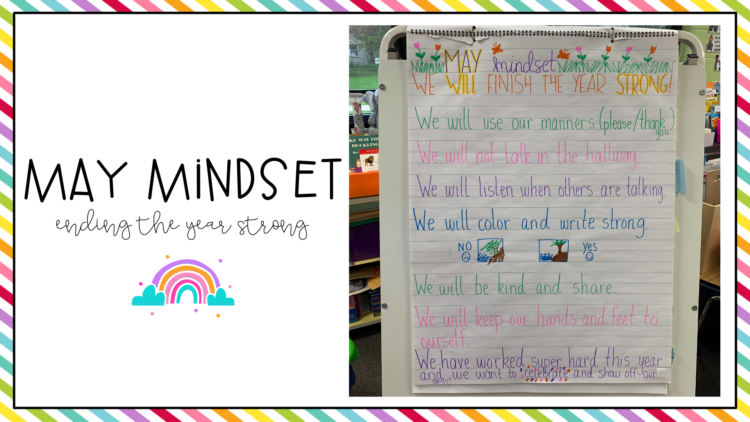 MAY MINDSET
ending the year strong
MAY mindset
WE WILL FINISH THE YEAR STRONG!
We will use our manners (please/thank you)
We will not talk in the hallway.
We will listen when others are talking.
We will color and write strong.
NO
yes
We will be kind and share.
We will keep our hands and feet to
ourself.
We have worked super hard this year
and we want to celebrate and show off our
WAY FOR